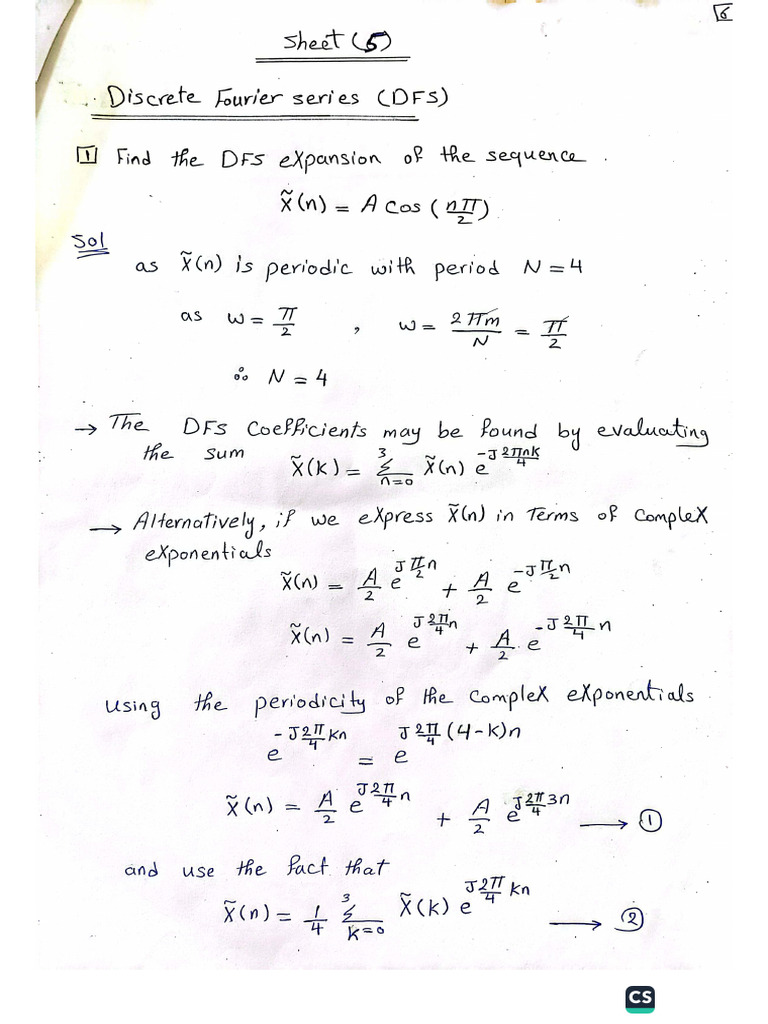 6
Sheet (5)
Discrete Fourier series (DFS)
1 Find the DFS expansion of the sequence.
x̃(n) = A cos (nπ/2)
Sol
as x̃(n) is periodic with period N = 4
as w = π/2 , w = 2πm/N = π/2
∴ N = 4
→ The DFS Coefficients may be found by evaluating
the sum X̃(k) = Σ_{n=0}^{3} x̃(n) e^{-J 2πnk/4}
→ Alternatively, if we express x̃(n) in Terms of complex
exponentials
x̃(n) = A/2 e^{J π/2 n} + A/2 e^{-J π/2 n}
x̃(n) = A/2 e^{J 2π/4 n} + A/2 e^{-J 2π/4 n}
using the periodicity of the complex exponentials
e^{-J 2π/4 kn} = e^{J 2π/4 (4-k)n}
x̃(n) = A/2 e^{J 2π/4 n} + A/2 e^{J 2π/4 3n} → ①
and use the fact that
x̃(n) = 1/4 Σ_{k=0}^{3} X̃(k) e^{J 2π/4 kn} → ②
CS